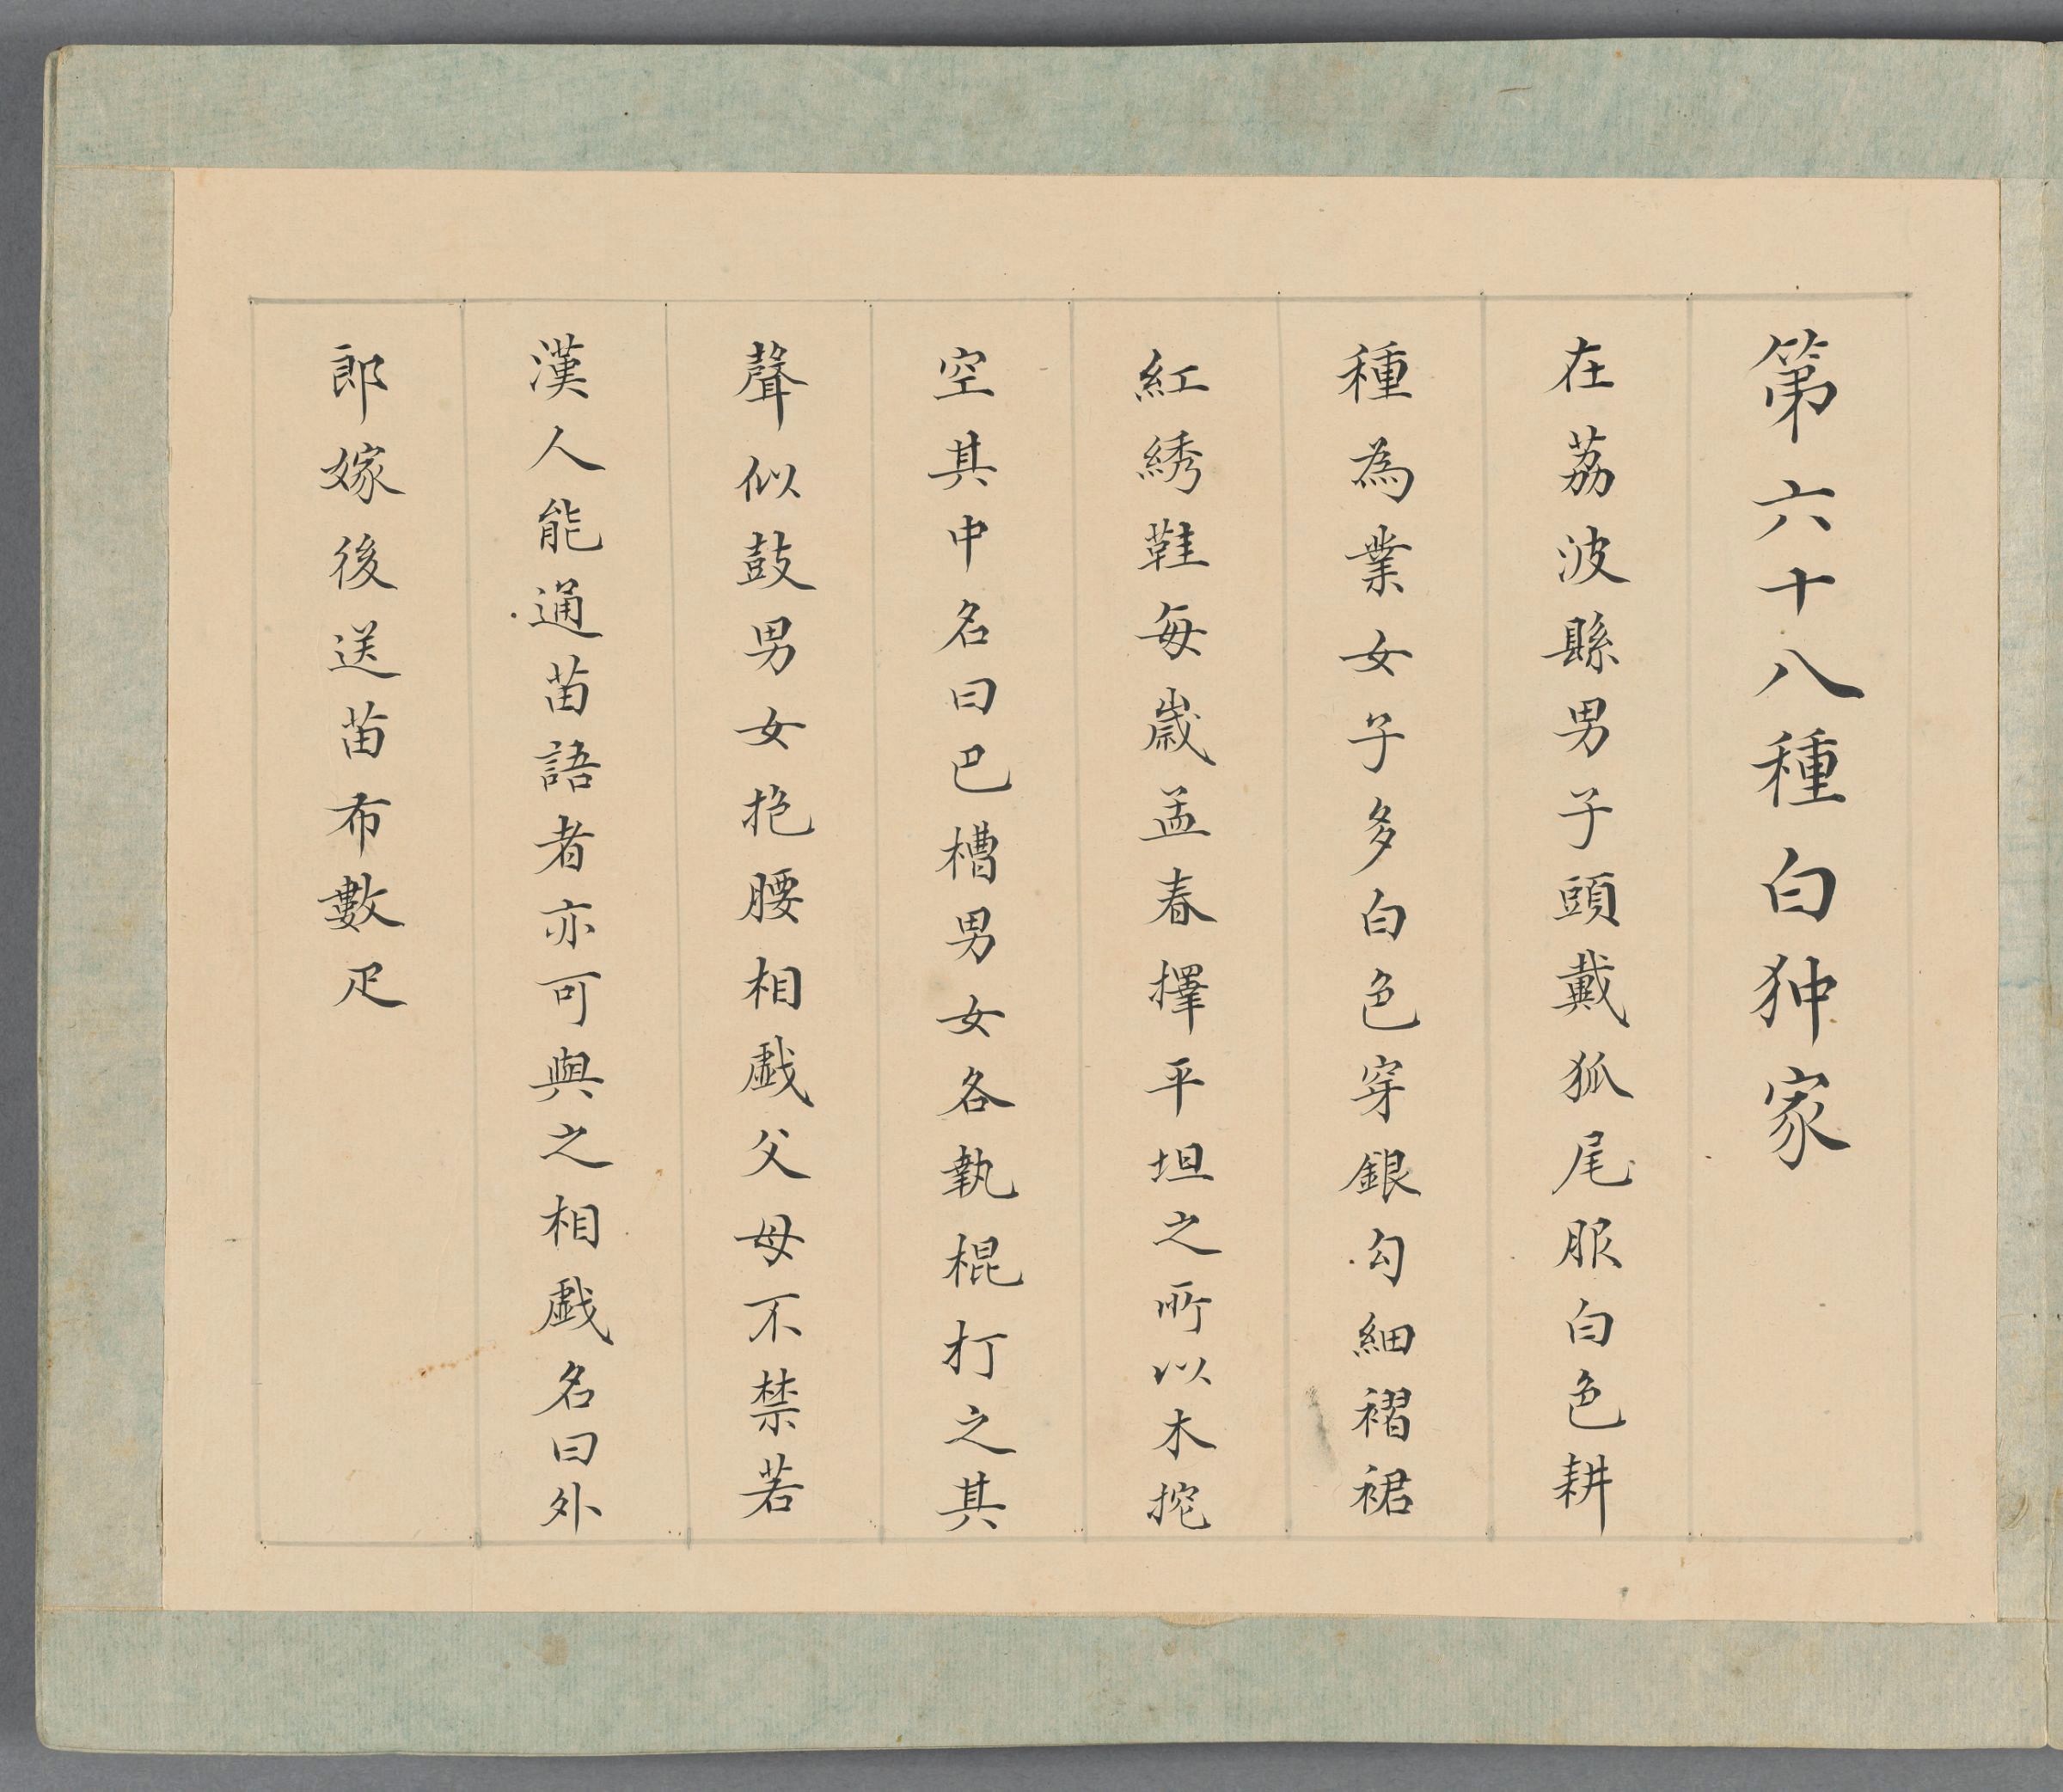 第六十八種白狆家
在荔波縣男子頭戴狐尾服白色耕
種為業女子多白色穿銀勾細褶裙
紅綉鞋每歲孟春擇平坦之所以木挖
空其中名曰巴槽男女各執棍打之其
聲似鼓男女抱腰相戱父母不禁若
漢人能通苗語者亦可與之相戱名曰外
郎嫁後送苗布數疋